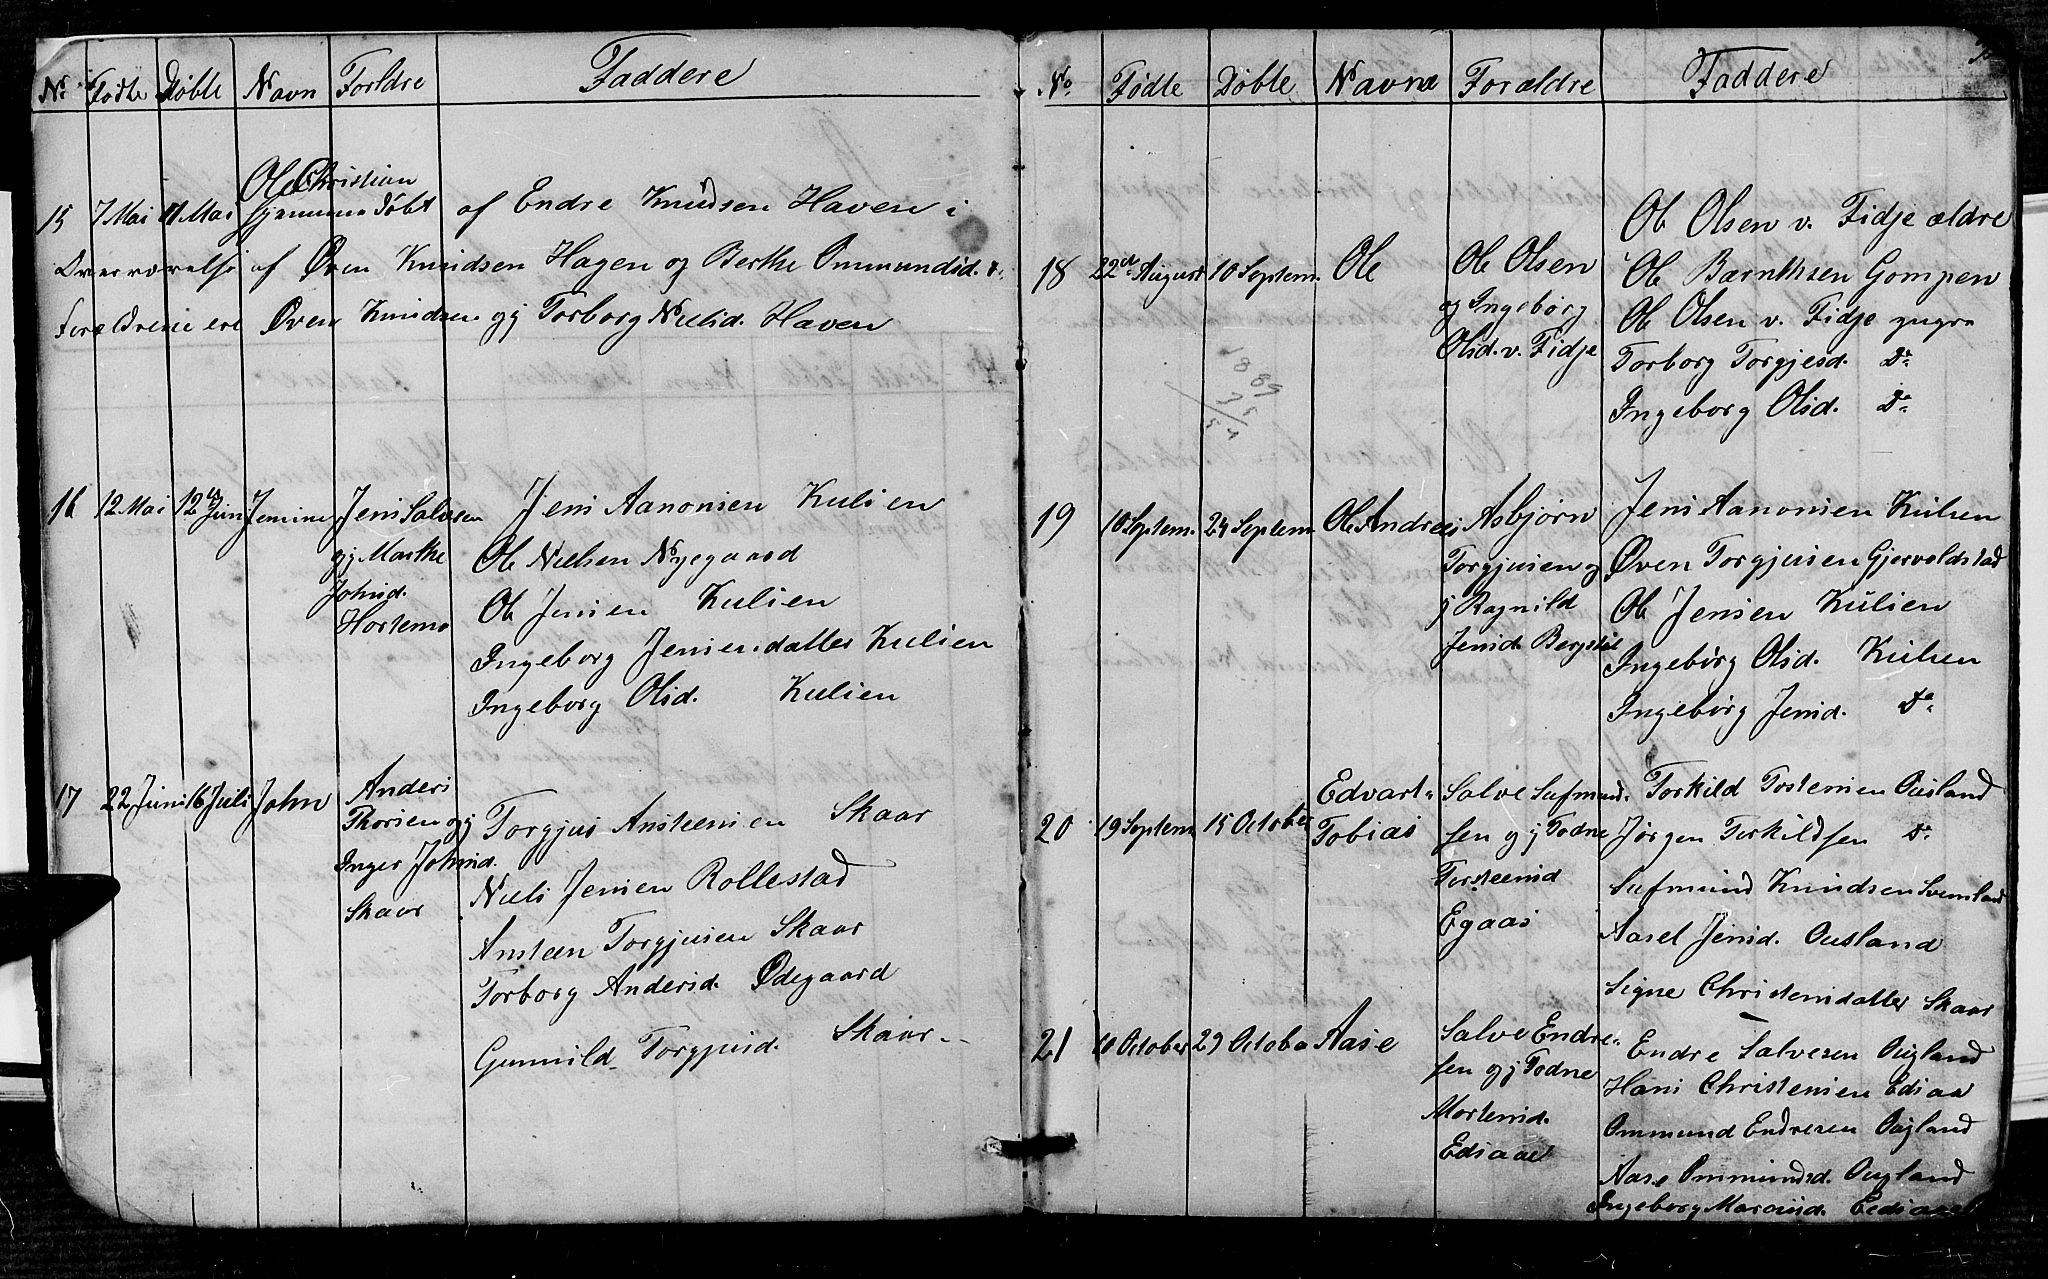 No Fødte Døbte Navn Forldre Faddere
Ole Christian
15 7 Mai 11 Mai hjemme Døbt af Endre Knudsen Haven i
Overværelse af Øven Knudsen Hagen og Berthe Ommundsd. &
Forældrene ere Øven Knudsen og Torborg Nielsd. Haven
16 12 Mai 12te Jun Jensine Jens Salvesen Jens Aanonsen Kulien
og Marthe Ole Nielsen Nyegaard
Johnsd. Ole Jensen Kulien
Hortemo Ingeborg Jensensdatter Kulien
Ingeborg Olsd. Kulien
17 22 Juni 16 Juli John Anders
Thorsen og Torgjus Ansteensen Skaar
Inger Johnsd. Niels Jensen Rollestad
Skaar Ansteen Torgjusen Skaar
Torborg Andersd. Ødegaard
Gunnild Torgjusd. Skaar
No Fødte Døbte Navne Forældre Faddere
Ole Olsen v. Fidje ældre
18 22de August 10 Septem. Ole Ole Olsen Ole Bærnthsen Gompen
og Ingebørg Ole Olsen v. Fidje yngre
Olsd. v. Fidje Torborg Torgjesd. Do
Ingeborg Olsd. Do
1889
35
54
19 10 Septem. 24 Septem. Ole Andreas Asbjørn Jens Aanonsen Kulien
Torgjusen og Øven Torgjusen Gjervoldstad
Ragnild Ole Jensen Kulien
Jensd. Bergstøl Ingebørg Olsd. Kulien
Ingebørg Jensd. Do
Edvart Salve Sufmund- Torkild Tostensen Ousland
20 19 Septem 15 October Tobias sen og Todne Jørgen Torkildsen Do
Torsteensd Sufmund Knudsen Svensland
Egaas Aasel Jensd. Ousland
Signe Christensdatter Skaar
21 10 October 29 October Aase Salve Endre- Endre Salvesen Ougland
sen og Todne Hans Christensen Edsaa
Mortensd. Ommund Endresen Ougland
Edsaae Aase Ommundsd. Ougland
Ingeborg